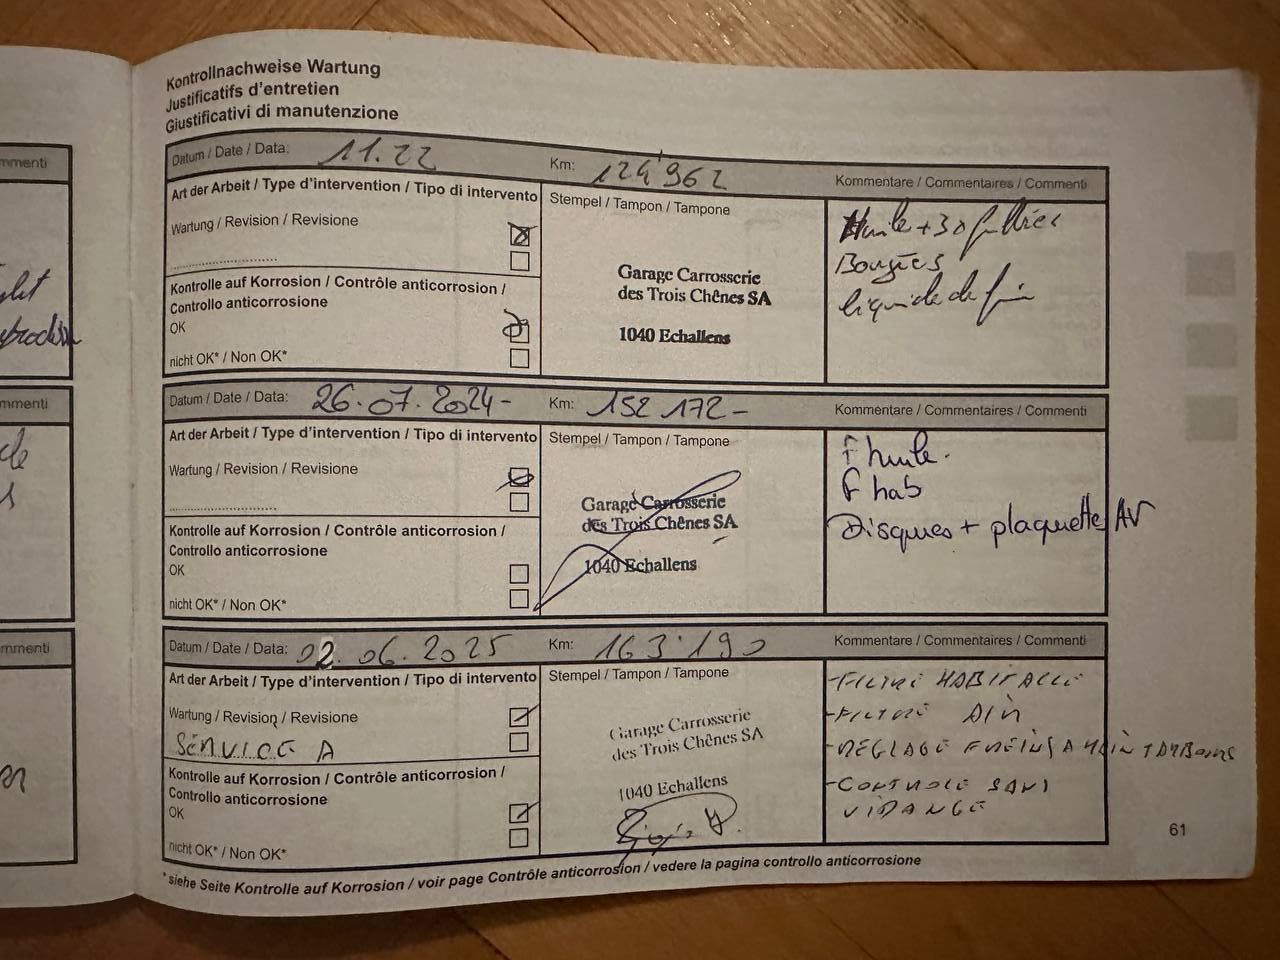 Kontrollnachweise Wartung
Justificatifs d'entretien
Giustificativi di manutenzione
mmenti
Datum / Date / Data: 11.22
Km: 124'962
Kommentare / Commentaires / Commenti
Art der Arbeit / Type d'intervention / Tipo di intervento
Stempel / Tampon / Tampone
Wartung / Revision / Revisione
Huile + 30 filtres
Bougies
liquide de frein
Garage Carrosserie
des Trois Chênes SA
1040 Echallens
Kontrolle auf Korrosion / Contrôle anticorrosion /
Controllo anticorrosione
OK
nicht OK* / Non OK*
mmenti
Datum / Date / Data: 26.07.2024-
Km: 152 172-
Kommentare / Commentaires / Commenti
Art der Arbeit / Type d'intervention / Tipo di intervento
Stempel / Tampon / Tampone
Wartung / Revision / Revisione
F huile.
F hab
Disques + plaquette AV
Garage Carrosserie
des Trois Chênes SA
1040 Echallens
Kontrolle auf Korrosion / Contrôle anticorrosion /
Controllo anticorrosione
OK
nicht OK* / Non OK*
mmenti
Datum / Date / Data: 02.06.2025
Km: 163'190
Kommentare / Commentaires / Commenti
Art der Arbeit / Type d'intervention / Tipo di intervento
Stempel / Tampon / Tampone
Wartung / Revision / Revisione
SERVICE A
-FILTRE HABITACLE
-FILTRE AIR
-REGLAGE FREINS A MAIN TAMBOURS
-CONTROLE SANS
VIDANGE
Garage Carrosserie
des Trois Chênes SA
1040 Echallens
Kontrolle auf Korrosion / Contrôle anticorrosion /
Controllo anticorrosione
OK
nicht OK* / Non OK*
*siehe Seite Kontrolle auf Korrosion / voir page Contrôle anticorrosion / vedere la pagina controllo anticorrosione
61